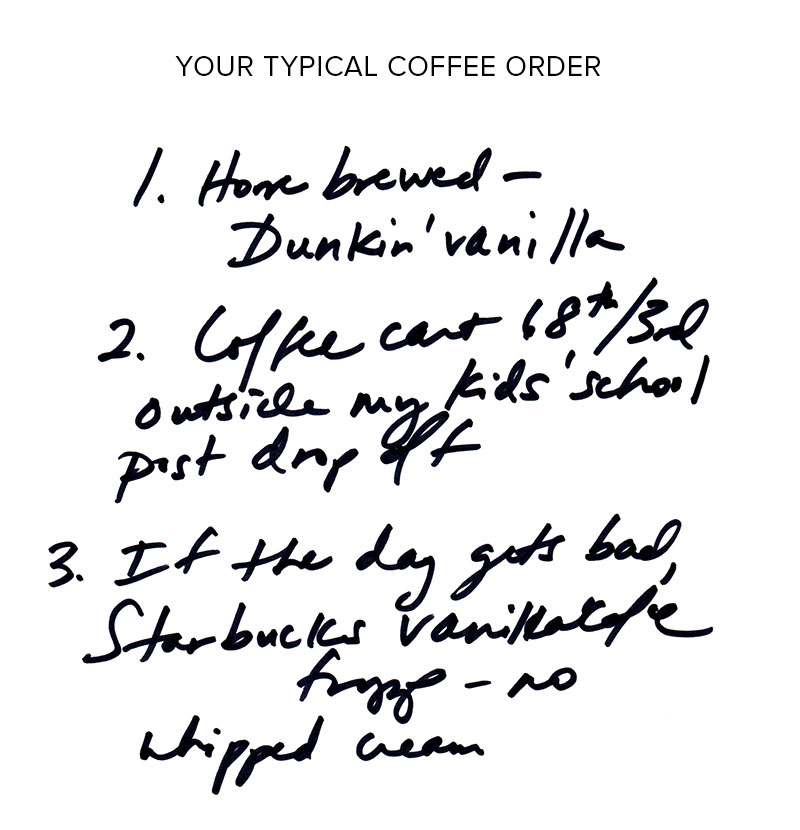 YOUR TYPICAL COFFEE ORDER
1. Home brewed –
Dunkin' vanilla
2. Coffee cart 68th/3rd
outside my kids' school
post drop off
3. If the day gets bad,
Starbucks vanilla
– no
whipped cream